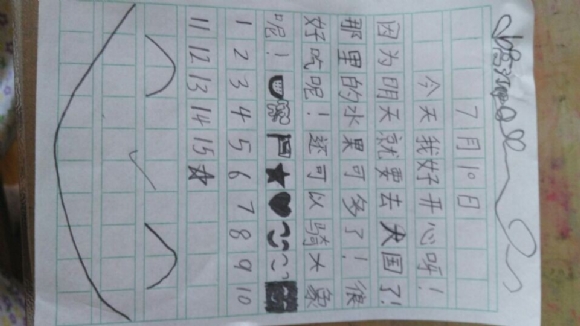 7月10日
今天我好开心呀!
因为明天就要去太国了!
那里的水果可多了!很
好吃呢!还可以骑大象
呢!
1 2 3 4 5 6 7 8 9 10
11 12 13 14 15